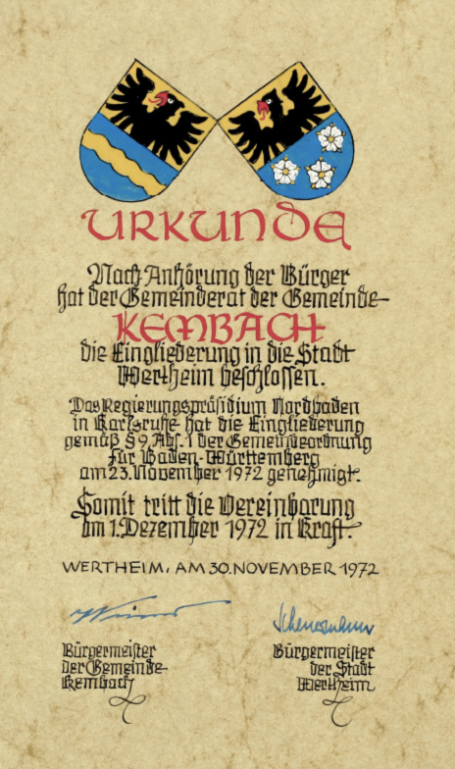 URKUNDE
Nach Anhörung der Bürger
hat der Gemeinderat der Gemeinde
KEMBACH
die Eingliederung in die Stadt
Wertheim beschlossen.
Das Regierungspräsidium Nordbaden
in Karlsruhe hat die Eingliederung
gemäß § 9, Abs. 1 der Gemeindeordnung
für Baden-Württemberg
am 23. November 1972 genehmigt.
Somit tritt die Vereinbarung
am 1. Dezember 1972 in Kraft.
WERTHEIM, AM 30. NOVEMBER 1972
Bürgermeister
der Gemeinde
Kembach
Bürgermeister
der Stadt
Wertheim